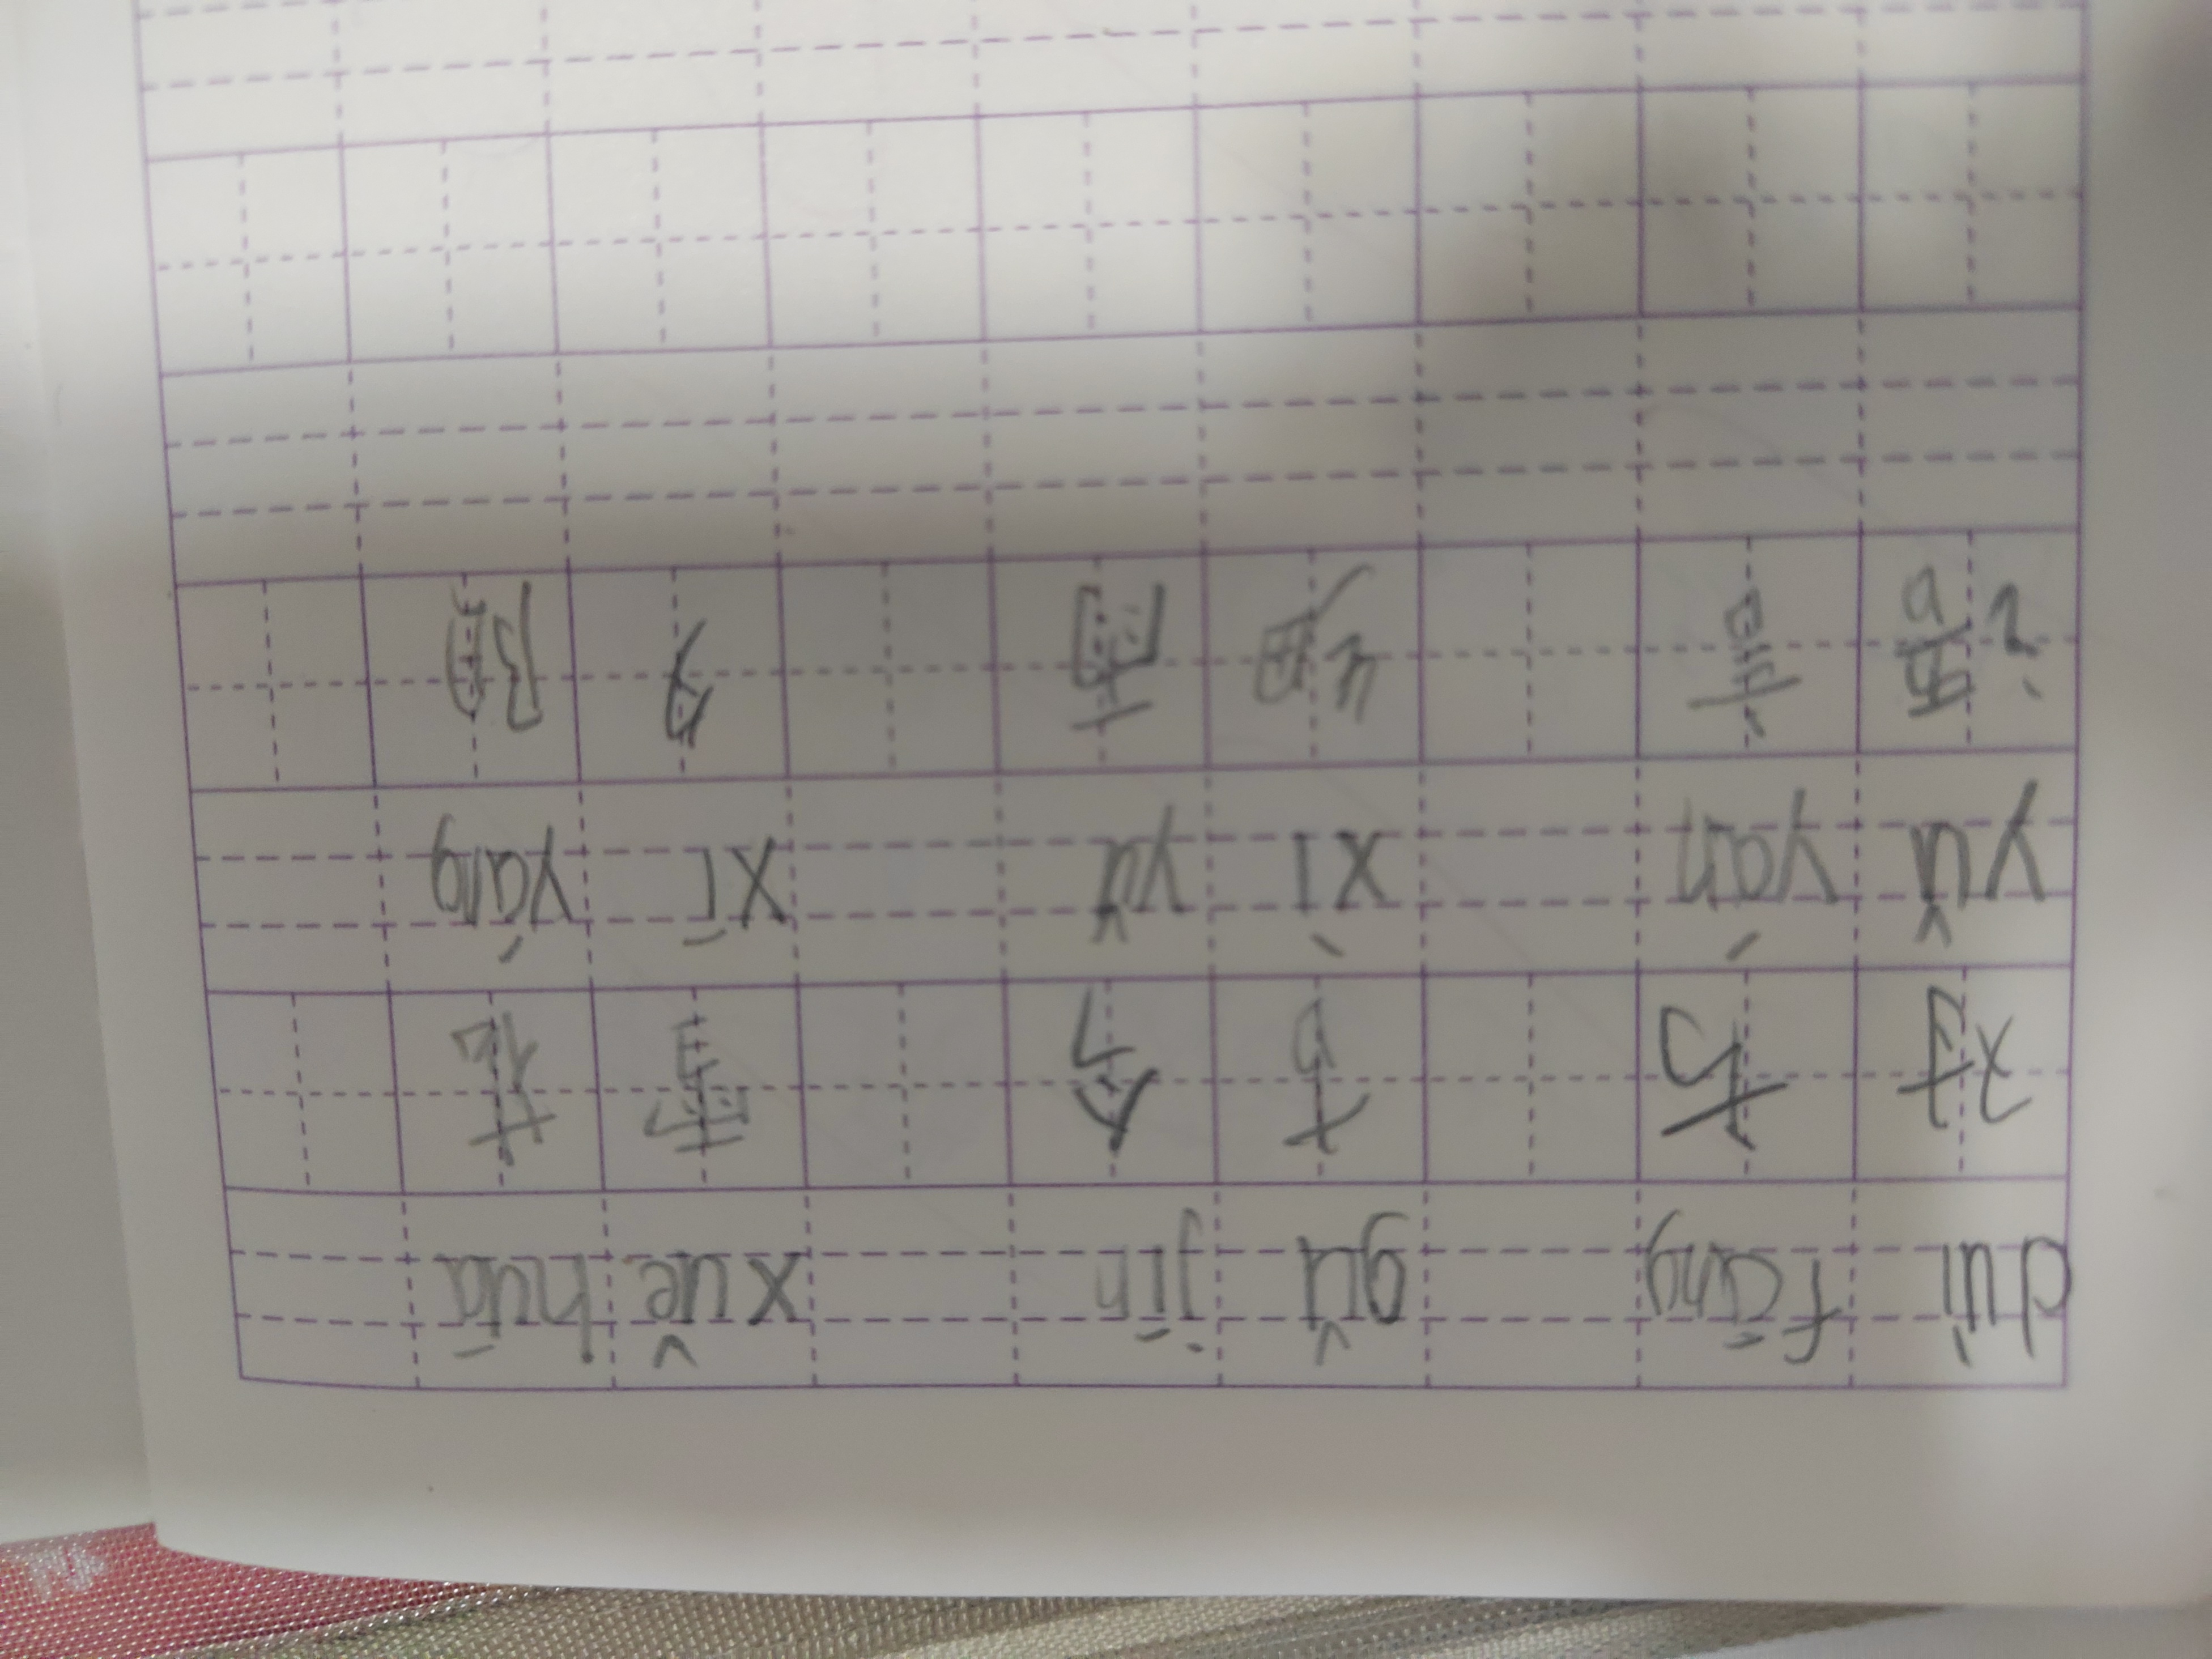 duì fāng gǔ jīn xuě huā
对方 古今 雪花
yǔ yán xì yǔ xī yáng
语言 细雨 夕阳